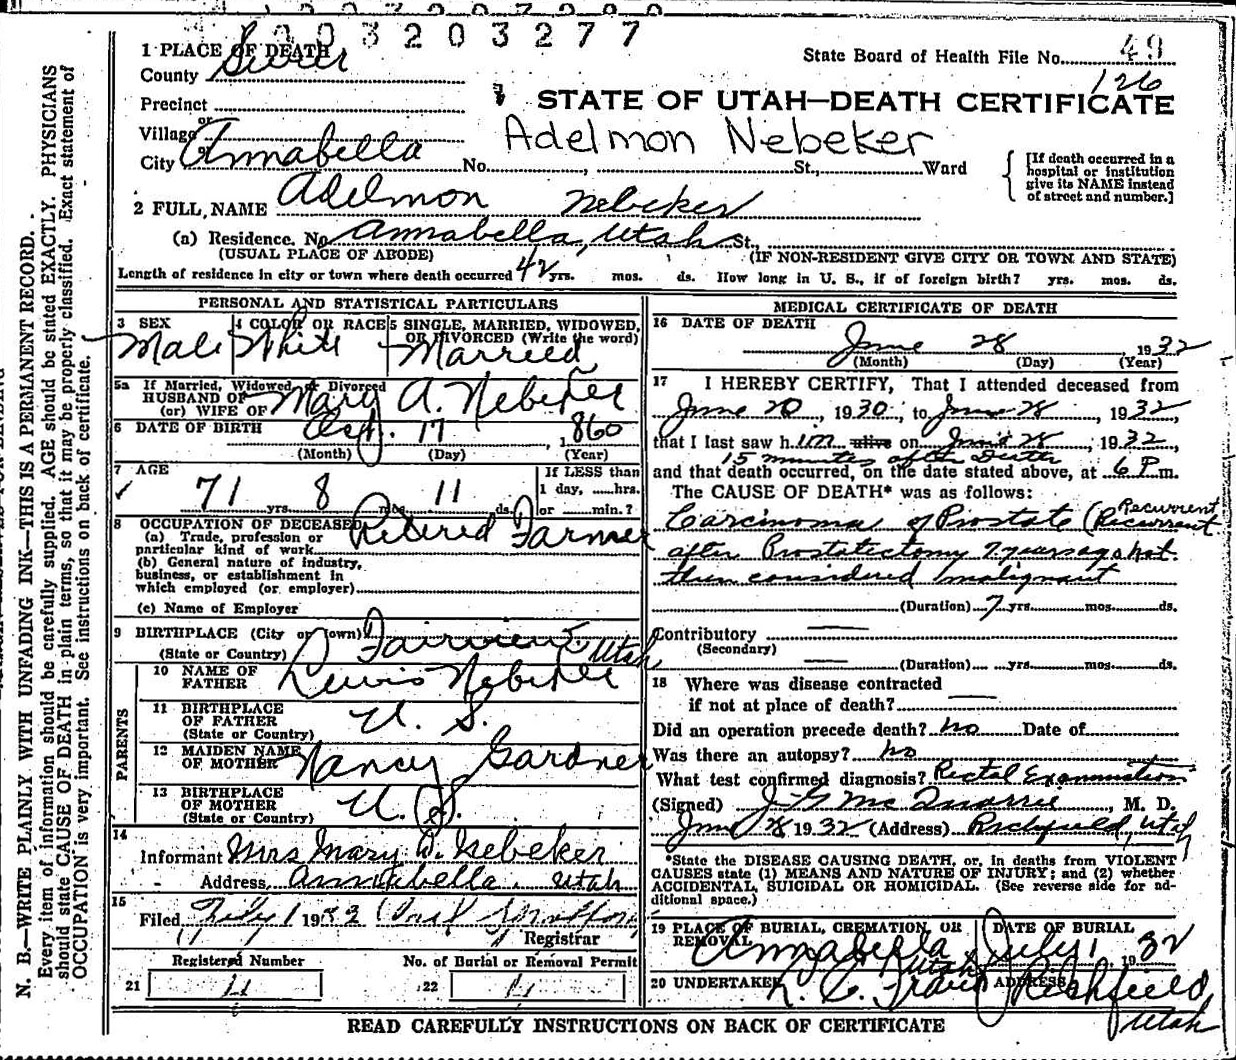 003203277
State Board of Health File No. 49
126
1 PLACE OF DEATH
County Sevier
STATE OF UTAH—DEATH CERTIFICATE
Precinct
or
Village
Adelmon Nebeker
or
City Annabella No. , St., Ward
[If death occurred in a hospital or institution give its NAME instead of street and number.]
2 FULL NAME Adelmon Nebeker
(a) Residence. No. Annabella, Utah St.,
(USUAL PLACE OF ABODE) (IF NON-RESIDENT GIVE CITY OR TOWN AND STATE)
Length of residence in city or town where death occurred 42 yrs. mos. ds. How long in U. S., if of foreign birth? yrs. mos. ds.
PERSONAL AND STATISTICAL PARTICULARS
3 SEX Male
4 COLOR OR RACE White
5 SINGLE, MARRIED, WIDOWED, OR DIVORCED (Write the word) Married
5a If Married, Widowed or Divorced
HUSBAND OF
(or) WIFE OF Mary A. Nebeker
6 DATE OF BIRTH 17, 1860
(Month) (Day) (Year)
7 AGE
71 yrs. 8 mos. 11 ds.
If LESS than
1 day, ......hrs.
or ......min.?
8 OCCUPATION OF DECEASED
(a) Trade, profession or
particular kind of work Retired Farmer
(b) General nature of industry,
business, or establishment in
which employed (or employer)
(c) Name of Employer
9 BIRTHPLACE (City or Town)
(State or Country) Fairview, Utah
PARENTS
10 NAME OF
FATHER Lewis Nebeker
11 BIRTHPLACE
OF FATHER
(State or Country) U. S.
12 MAIDEN NAME
OF MOTHER Nancy Gardner
13 BIRTHPLACE
OF MOTHER
(State or Country) U. S.
14
Informant Mrs Mary Nebeker
Address Annabella Utah
15
Filed July 1 1932
Registrar
Registered Number No. of Burial or Removal Permit
21 11 22 11
MEDICAL CERTIFICATE OF DEATH
16 DATE OF DEATH
June 28 1932
(Month) (Day) (Year)
17 I HEREBY CERTIFY, That I attended deceased from
June 20, 1930, to June 28, 1932,
that I last saw him alive on June 28, 1932,
15 minutes after Death
and that death occurred, on the date stated above, at 6 P.m.
The CAUSE OF DEATH* was as follows:
Recurrent
Carcinoma of Prostate (Recurrent
after Prostatectomy 7 years ago not
then considered malignant
(Duration) 7 yrs. mos. ds.
Contributory
(Secondary)
(Duration) yrs. mos. ds.
18 Where was disease contracted
if not at place of death?
Did an operation precede death? no Date of
Was there an autopsy? no
What test confirmed diagnosis? Rectal Examination
(Signed) J G McQuarrie, M. D.
June 28 1932 (Address) Richfield, Utah
*State the DISEASE CAUSING DEATH, or, in deaths from VIOLENT
CAUSES state (1) MEANS AND NATURE OF INJURY; and (2) whether
ACCIDENTAL, SUICIDAL OR HOMICIDAL. (See reverse side for additional space.)
19 PLACE OF BURIAL, CREMATION, OR
REMOVAL Annabella Utah
DATE OF BURIAL
July 1 1932
20 UNDERTAKER
ADDRESS Richfield, Utah
READ CAREFULLY INSTRUCTIONS ON BACK OF CERTIFICATE
N. B.—WRITE PLAINLY WITH UNFADING INK—THIS IS A PERMANENT RECORD.
Every item of information should be carefully supplied. AGE should be stated EXACTLY. PHYSICIANS
should state CAUSE OF DEATH in plain terms, so that it may be properly classified. Exact statement of
OCCUPATION is very important. See instructions on back of certificate.